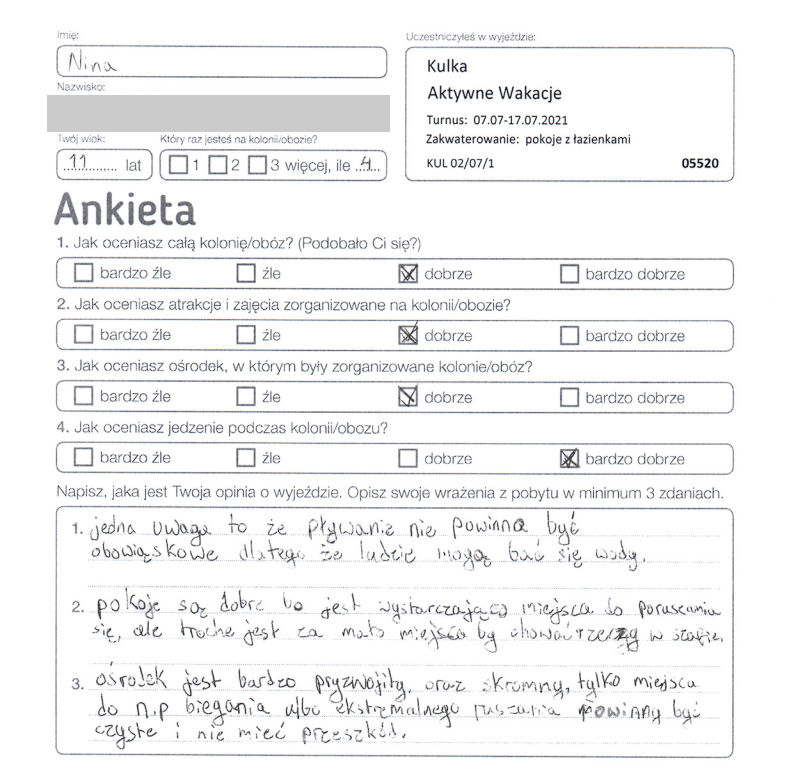 Imię:
Nina
Nazwisko:
Twój wiek:
11 lat
Który raz jesteś na kolonii/obozie?
1 2 3 więcej, ile 4
Uczestniczyłeś w wyjeździe:
Kulka
Aktywne Wakacje
Turnus: 07.07-17.07.2021
Zakwaterowanie: pokoje z łazienkami
KUL 02/07/1 05520
Ankieta
1. Jak oceniasz całą kolonię/obóz? (Podobało Ci się?)
bardzo źle źle dobrze bardzo dobrze
2. Jak oceniasz atrakcje i zajęcia zorganizowane na kolonii/obozie?
bardzo źle źle dobrze bardzo dobrze
3. Jak oceniasz ośrodek, w którym były zorganizowane kolonie/obóz?
bardzo źle źle dobrze bardzo dobrze
4. Jak oceniasz jedzenie podczas kolonii/obozu?
bardzo źle źle dobrze bardzo dobrze
Napisz, jaka jest Twoja opinia o wyjeździe. Opisz swoje wrażenia z pobytu w minimum 3 zdaniach.
1. jedna uwaga to że pływanie nie powinno być
obowiąskowe dlatego że ludzie mogą bać się wody.
2. pokoje są dobre bo jest wystarczająco miejsca do poruszania
się, ale troche jest za mało miejsca by chować rzeczy w szafie.
3. ośrodek jest bardzo pryzwojity, oraz skromny, tylko miejsca
do n.p biegania albo ekstremalnego ruszania powinny być
czyste i nie mieć przeszkód.